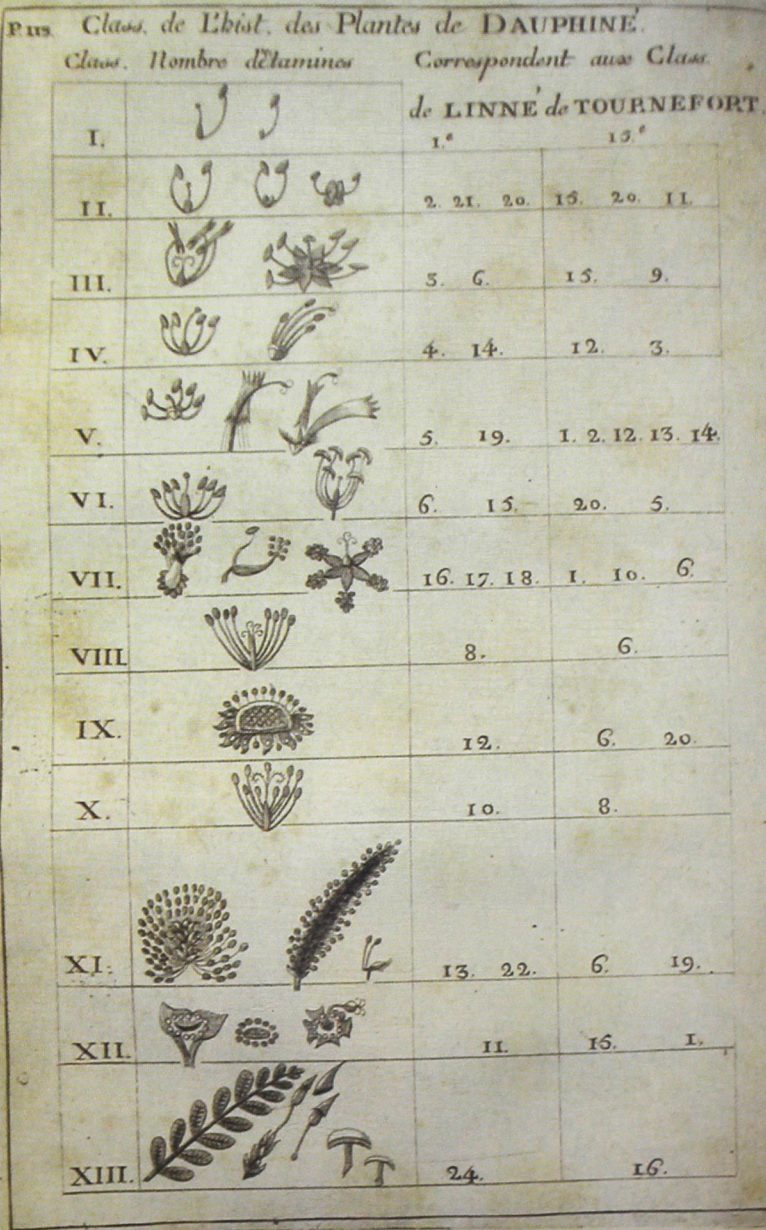 P. 113. Class. de L'hist. des Plantes de DAUPHINÉ.
Class. Nombre d'Étamines Correspondent aux Class.
de LINNÉ de TOURNEFORT.
I. 1.e 15.e
II. 2. 21. 20. 15. 20. 11.
III. 3. 6. 15. 9.
IV. 4. 14. 12. 3.
V. 5. 19. 1. 2. 12. 13. 14.
VI. 6. 15. 20. 5.
VII. 16. 17. 18. 1. 10. 6.
VIII. 8. 6.
IX. 12. 6. 20.
X. 10. 8.
XI. 13. 22. 6. 19.
XII. 11. 15. 1.
XIII. 24. 16.